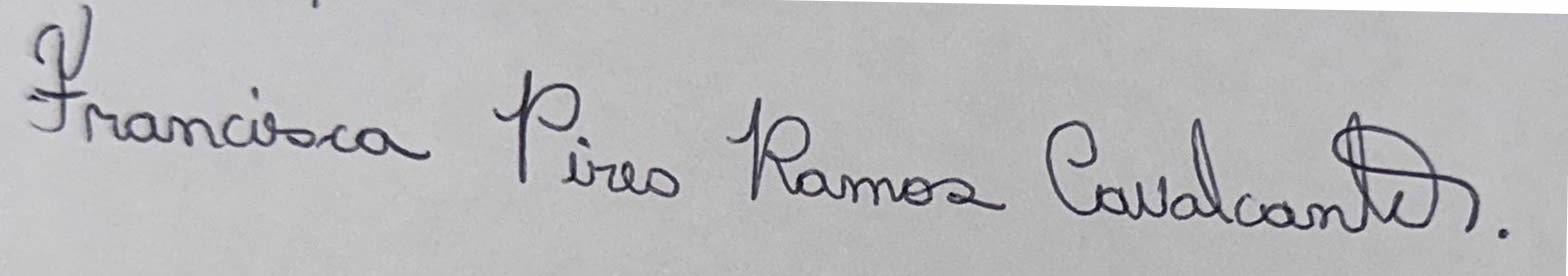 Francisca Pires Ramos Cavalcante.